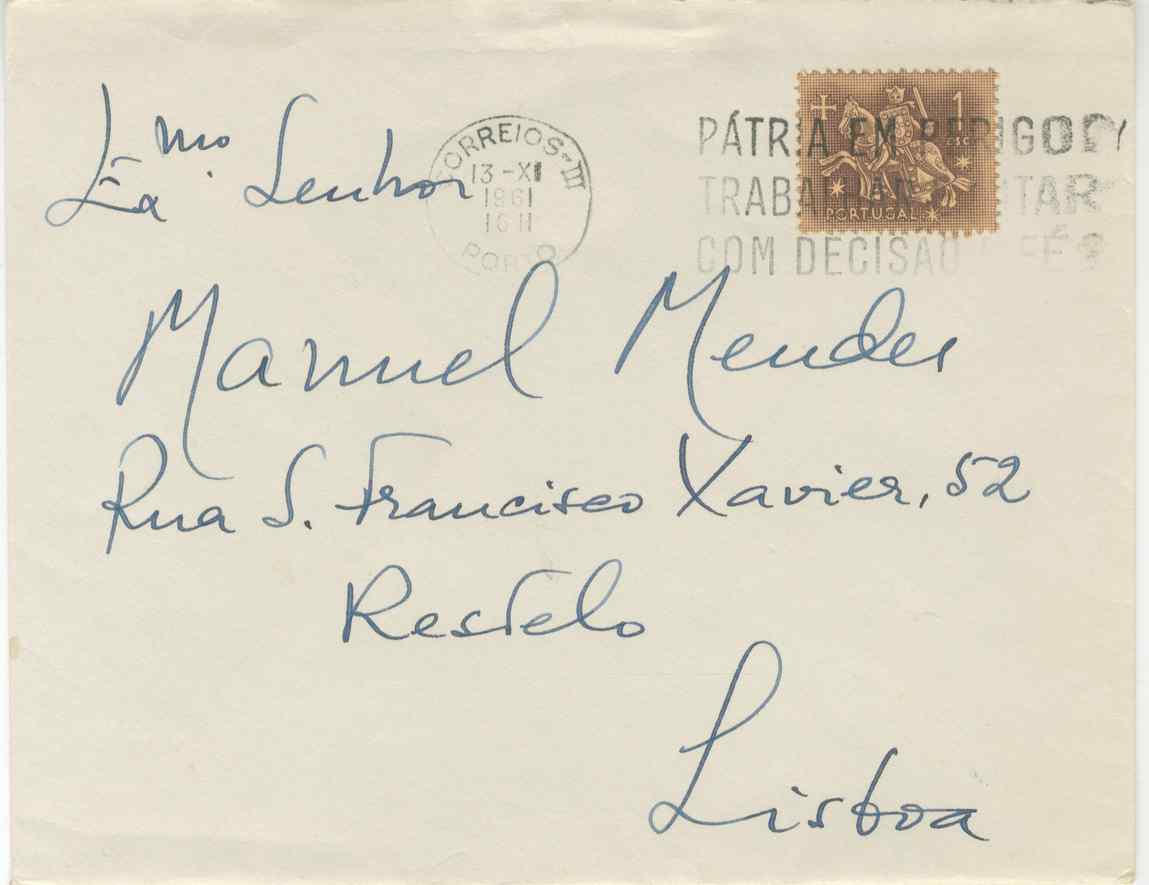 Exmo. Senhor
CORREIOS-III
13-XI
1961
PORTO
PÁTRIA EM PERIGO
TRABALHAR LUTAR
COM DECISÃO E FÉ
1
PORTUGAL
Manuel Mendes
Rua S. Francisco Xavier, 52
Restelo
Lisboa